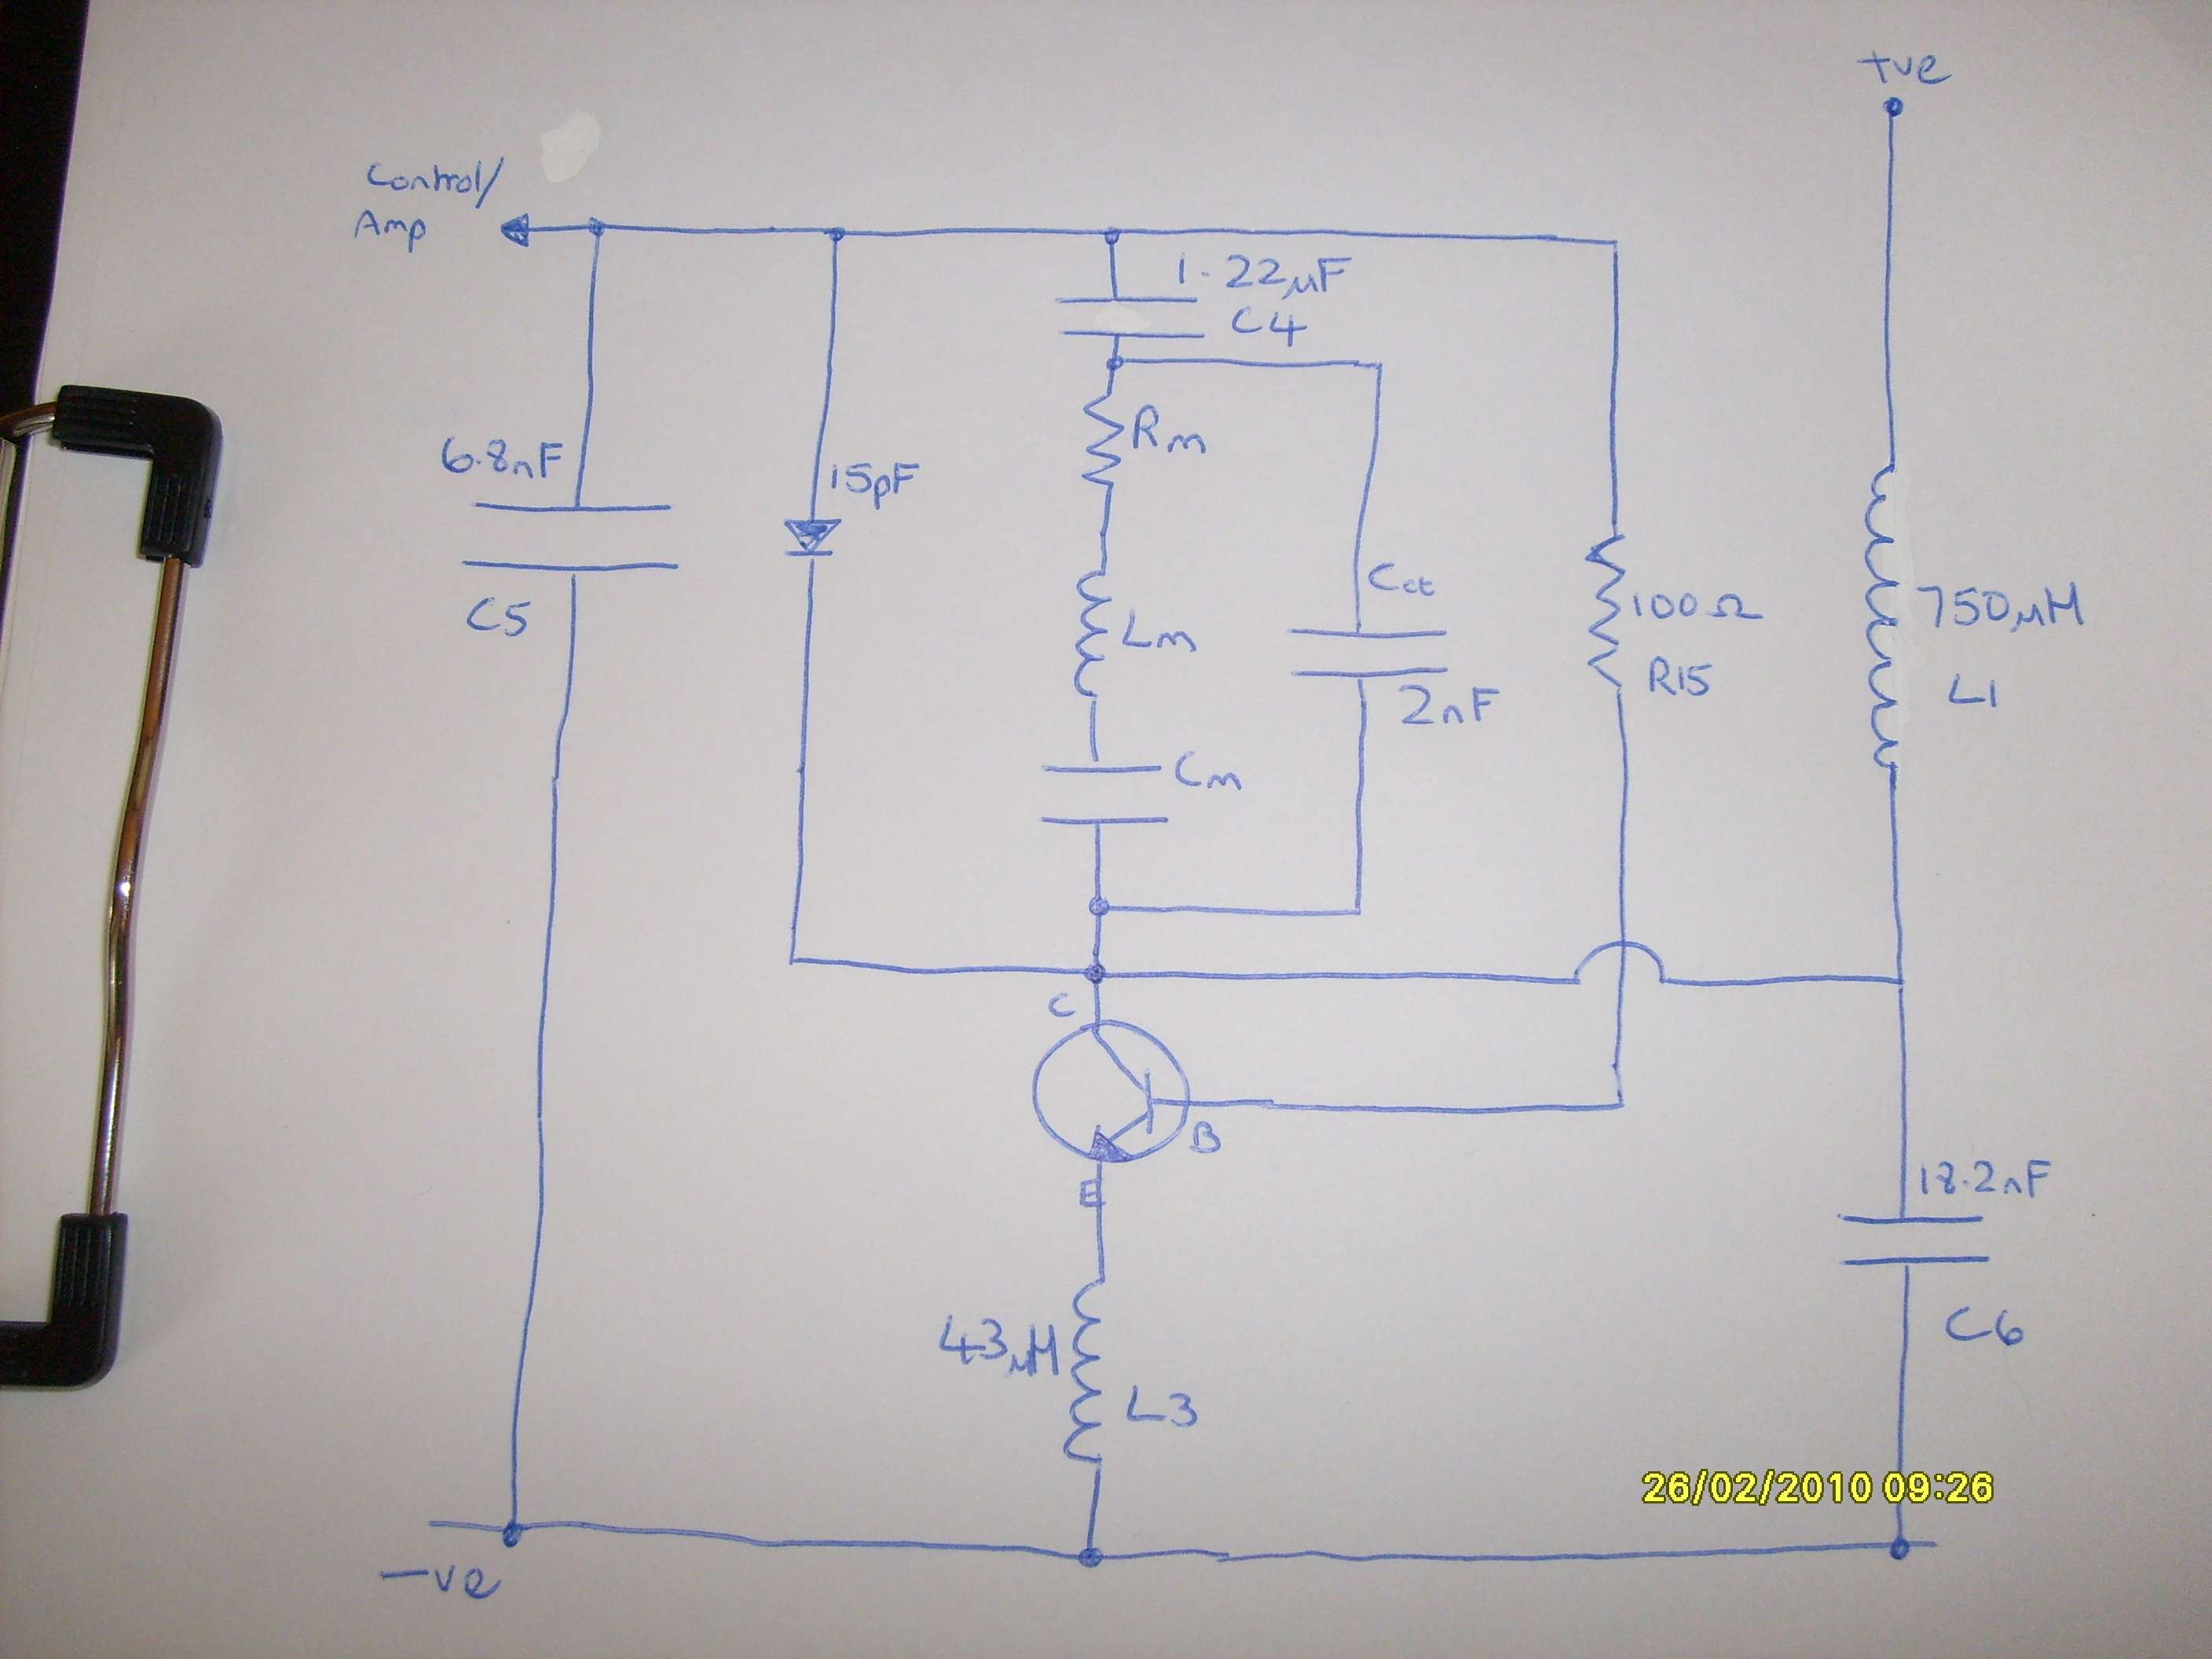 +ve
Control/
Amp
1.22µF
C4
Rm
6.8nF
15pF
C5
Lm
Cct
100Ω
R15
750µH
L1
2nF
Cm
C
B
E
18.2nF
C6
43µH
L3
26/02/2010 09:26
-ve